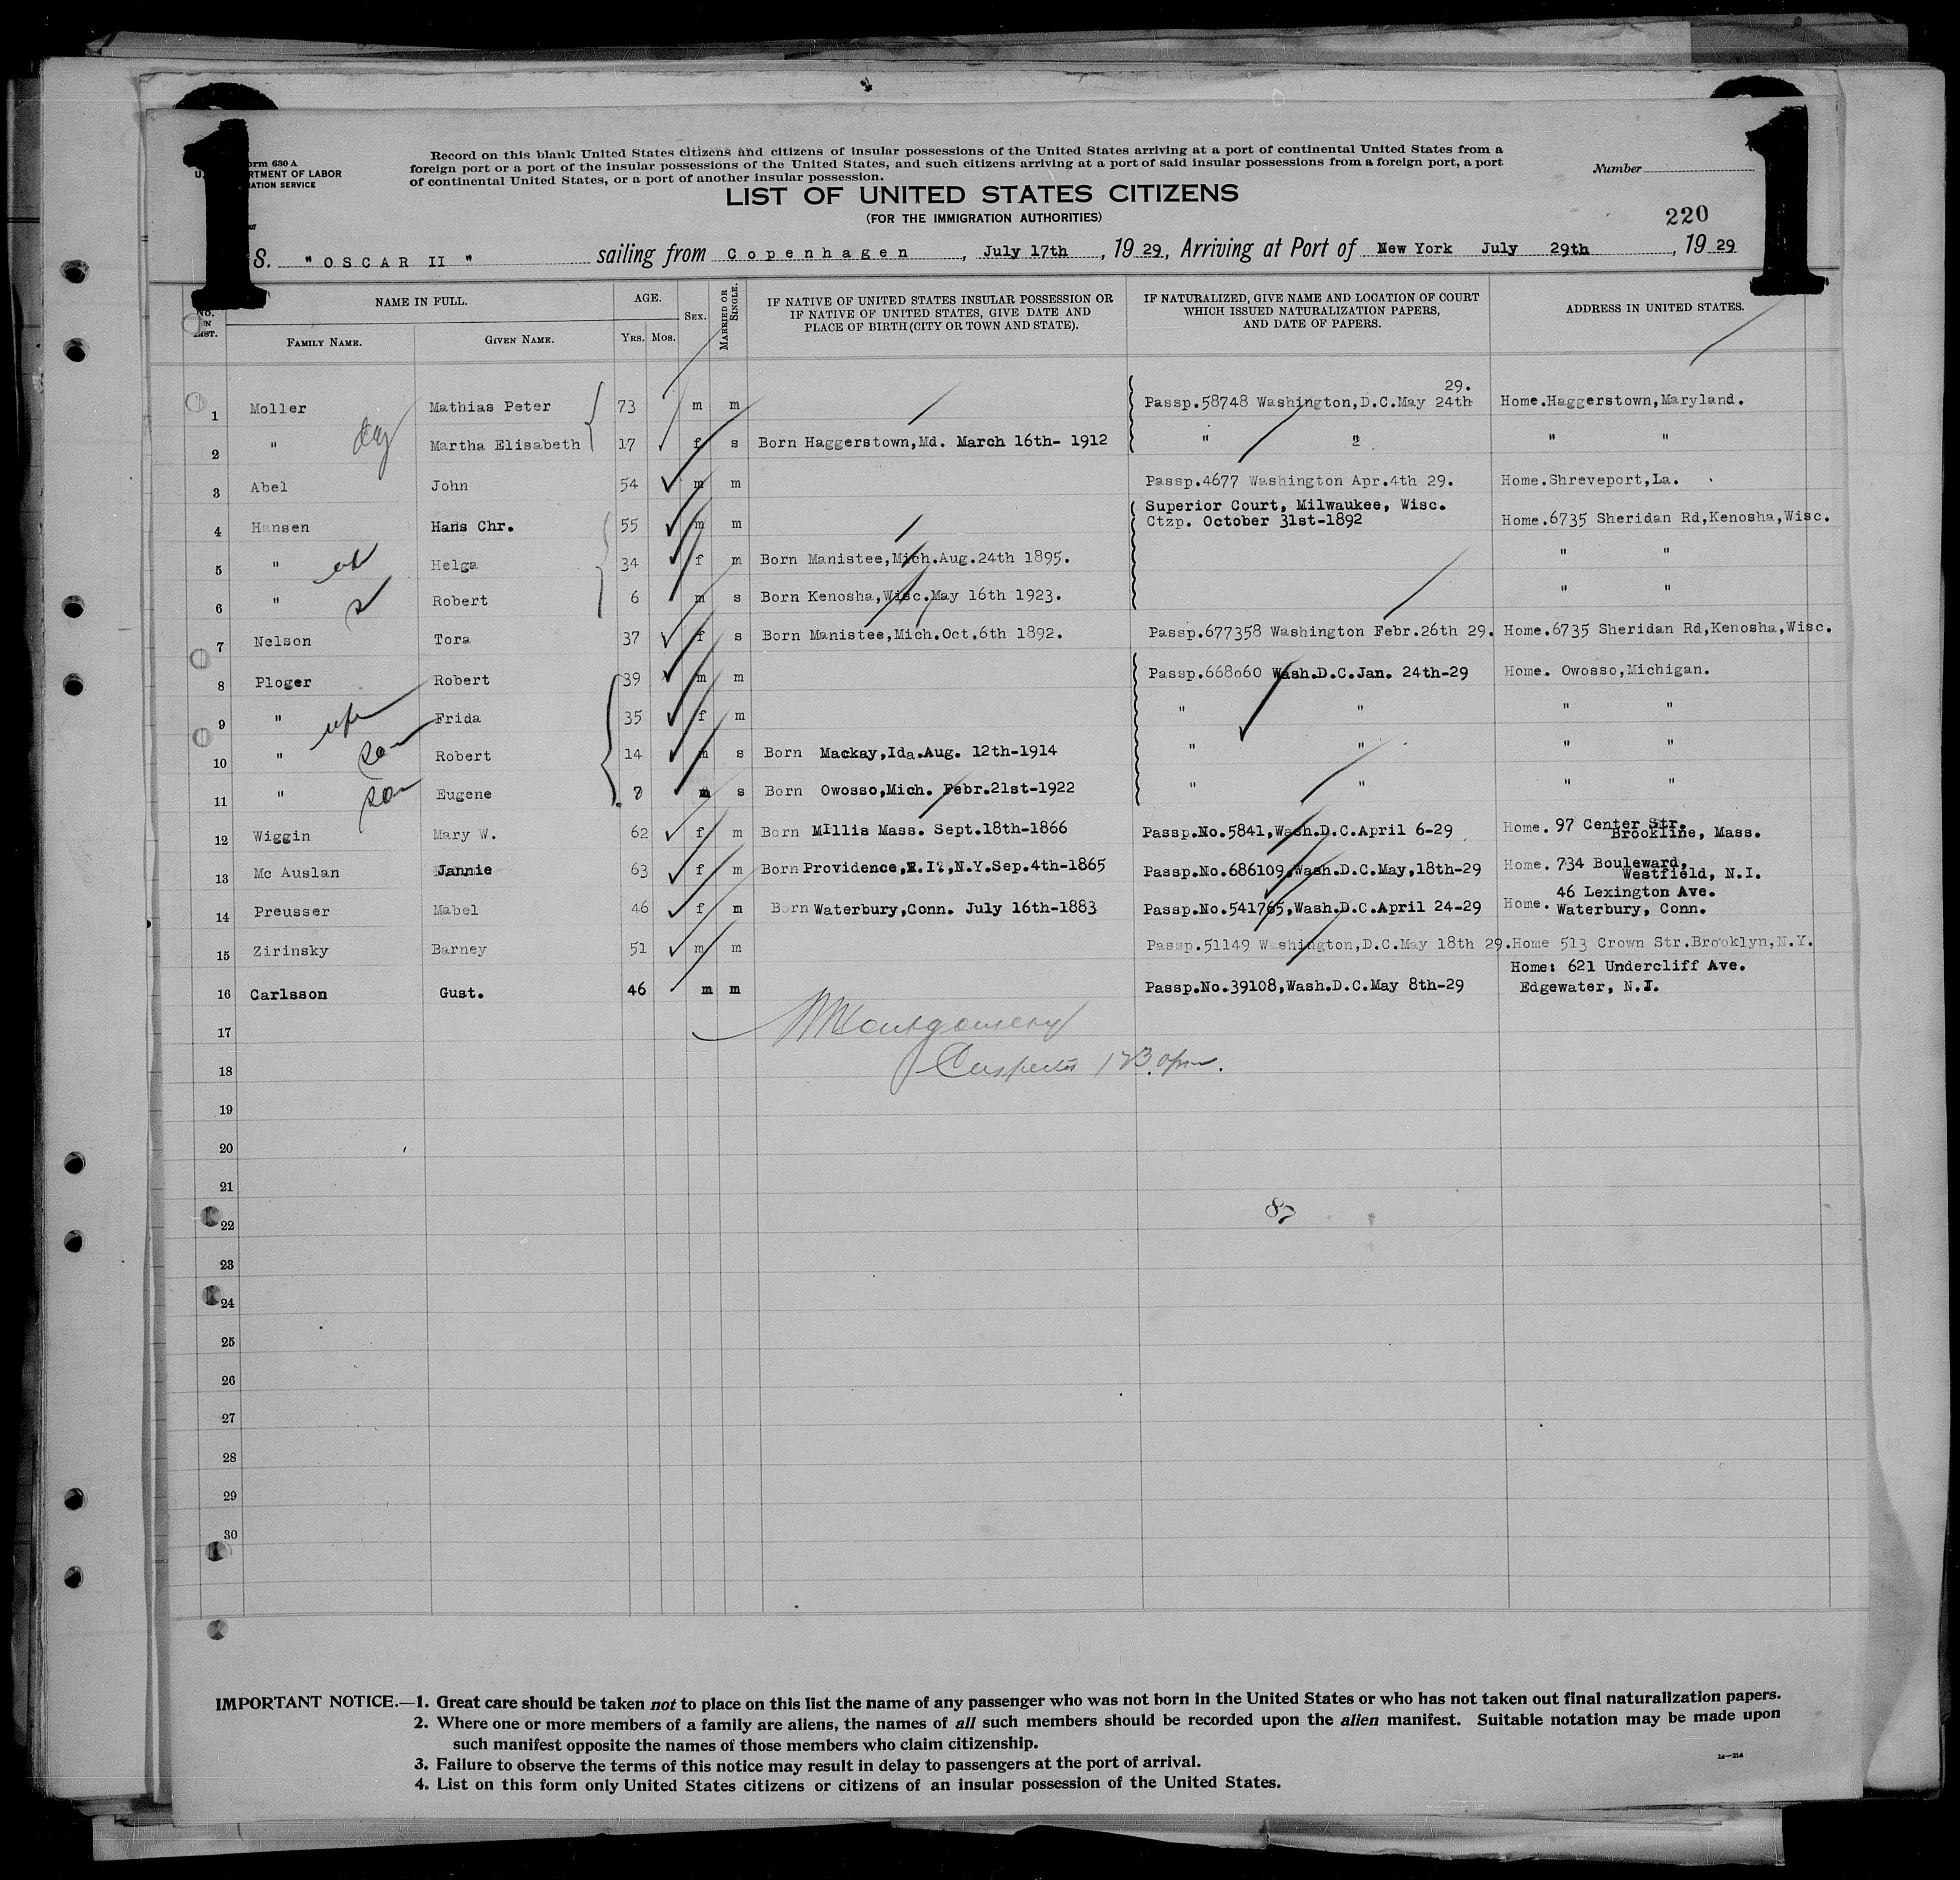 1 1
Form 630 A
U. DEPARTMENT OF LABOR
RATION SERVICE
Record on this blank United States citizens and citizens of insular possessions of the United States arriving at a port of continental United States from a
foreign port or a port of the insular possessions of the United States, and such citizens arriving at a port of said insular possessions from a foreign port, a port
of continental United States, or a port of another insular possession.
Number
LIST OF UNITED STATES CITIZENS
(FOR THE IMMIGRATION AUTHORITIES)
220
S. "OSCAR II" sailing from Copenhagen, July 17th, 1929, Arriving at Port of New York July 29th, 1929
No. IN LIST. NAME IN FULL. AGE. SEX. MARRIED OR SINGLE. IF NATIVE OF UNITED STATES INSULAR POSSESSION OR IF NATIVE OF UNITED STATES, GIVE DATE AND PLACE OF BIRTH (CITY OR TOWN AND STATE). IF NATURALIZED, GIVE NAME AND LOCATION OF COURT WHICH ISSUED NATURALIZATION PAPERS, AND DATE OF PAPERS. ADDRESS IN UNITED STATES.
FAMILY NAME. GIVEN NAME. YRS. MOS.
1 Moller Mathias Peter 73 m m Passp.58748 Washington,D.C.May 24th 29. Home.Haggerstown,Maryland.
2 " Martha Elisabeth 17 f s Born Haggerstown,Md. March 16th- 1912 " " " "
3 Abel John 54 m m Passp.4677 Washington Apr.4th 29. Home.Shreveport,La.
4 Hansen Hans Chr. 55 m m Superior Court, Milwaukee, Wisc. Ctzp. October 31st-1892 Home.6735 Sheridan Rd,Kenosha,Wisc.
5 " Helga 34 f m Born Manistee,Mich.Aug.24th 1895. " "
6 " Robert 6 m s Born Kenosha,Wisc.May 16th 1923. " "
7 Nelson Tora 37 f s Born Manistee,Mich.Oct.6th 1892. Passp.677358 Washington Febr.26th 29. Home.6735 Sheridan Rd,Kenosha,Wisc.
8 Ploger Robert 39 m m Passp.668060 Wash.D.C.Jan. 24th-29 Home. Owosso,Michigan.
9 " wife Frida 35 f m " " " "
10 " son Robert 14 m s Born Mackay,Ida.Aug. 12th-1914 " " " "
11 " son Eugene 7 m s Born Owosso,Mich. Febr.21st-1922 " " " "
12 Wiggin Mary W. 62 f m Born MIllis Mass. Sept.18th-1866 Passp.No.5841,Wash.D.C.April 6-29 Home. 97 Center Str. Brookline, Mass.
13 Mc Auslan Jannie 63 f m Born Providence,R.I?,N.Y.Sep.4th-1865 Passp.No.686109,Wash.D.C.May,18th-29 Home. 734 Bouleward, Westfield, N.I.
14 Preusser Mabel 46 f m Born Waterbury,Conn. July 16th-1883 Passp.No.541765,Wash.D.C.April 24-29 Home. 46 Lexington Ave. Waterbury, Conn.
15 Zirinsky Barney 51 m m Passp.51149 Washington,D.C.May 18th 29. Home 513 Crown Str.Brooklyn,N.Y.
16 Carlsson Gust. 46 m m Passp.No.39108,Wash.D.C.May 8th-29 Home: 621 Undercliff Ave. Edgewater, N.I.
17 Montgomery
18 Inspector 1230pm.
19
20
21
22 87
23
24
25
26
27
28
29
30
IMPORTANT NOTICE.—1. Great care should be taken not to place on this list the name of any passenger who was not born in the United States or who has not taken out final naturalization papers.
2. Where one or more members of a family are aliens, the names of all such members should be recorded upon the alien manifest. Suitable notation may be made upon
such manifest opposite the names of those members who claim citizenship.
3. Failure to observe the terms of this notice may result in delay to passengers at the port of arrival.
14—214
4. List on this form only United States citizens or citizens of an insular possession of the United States.